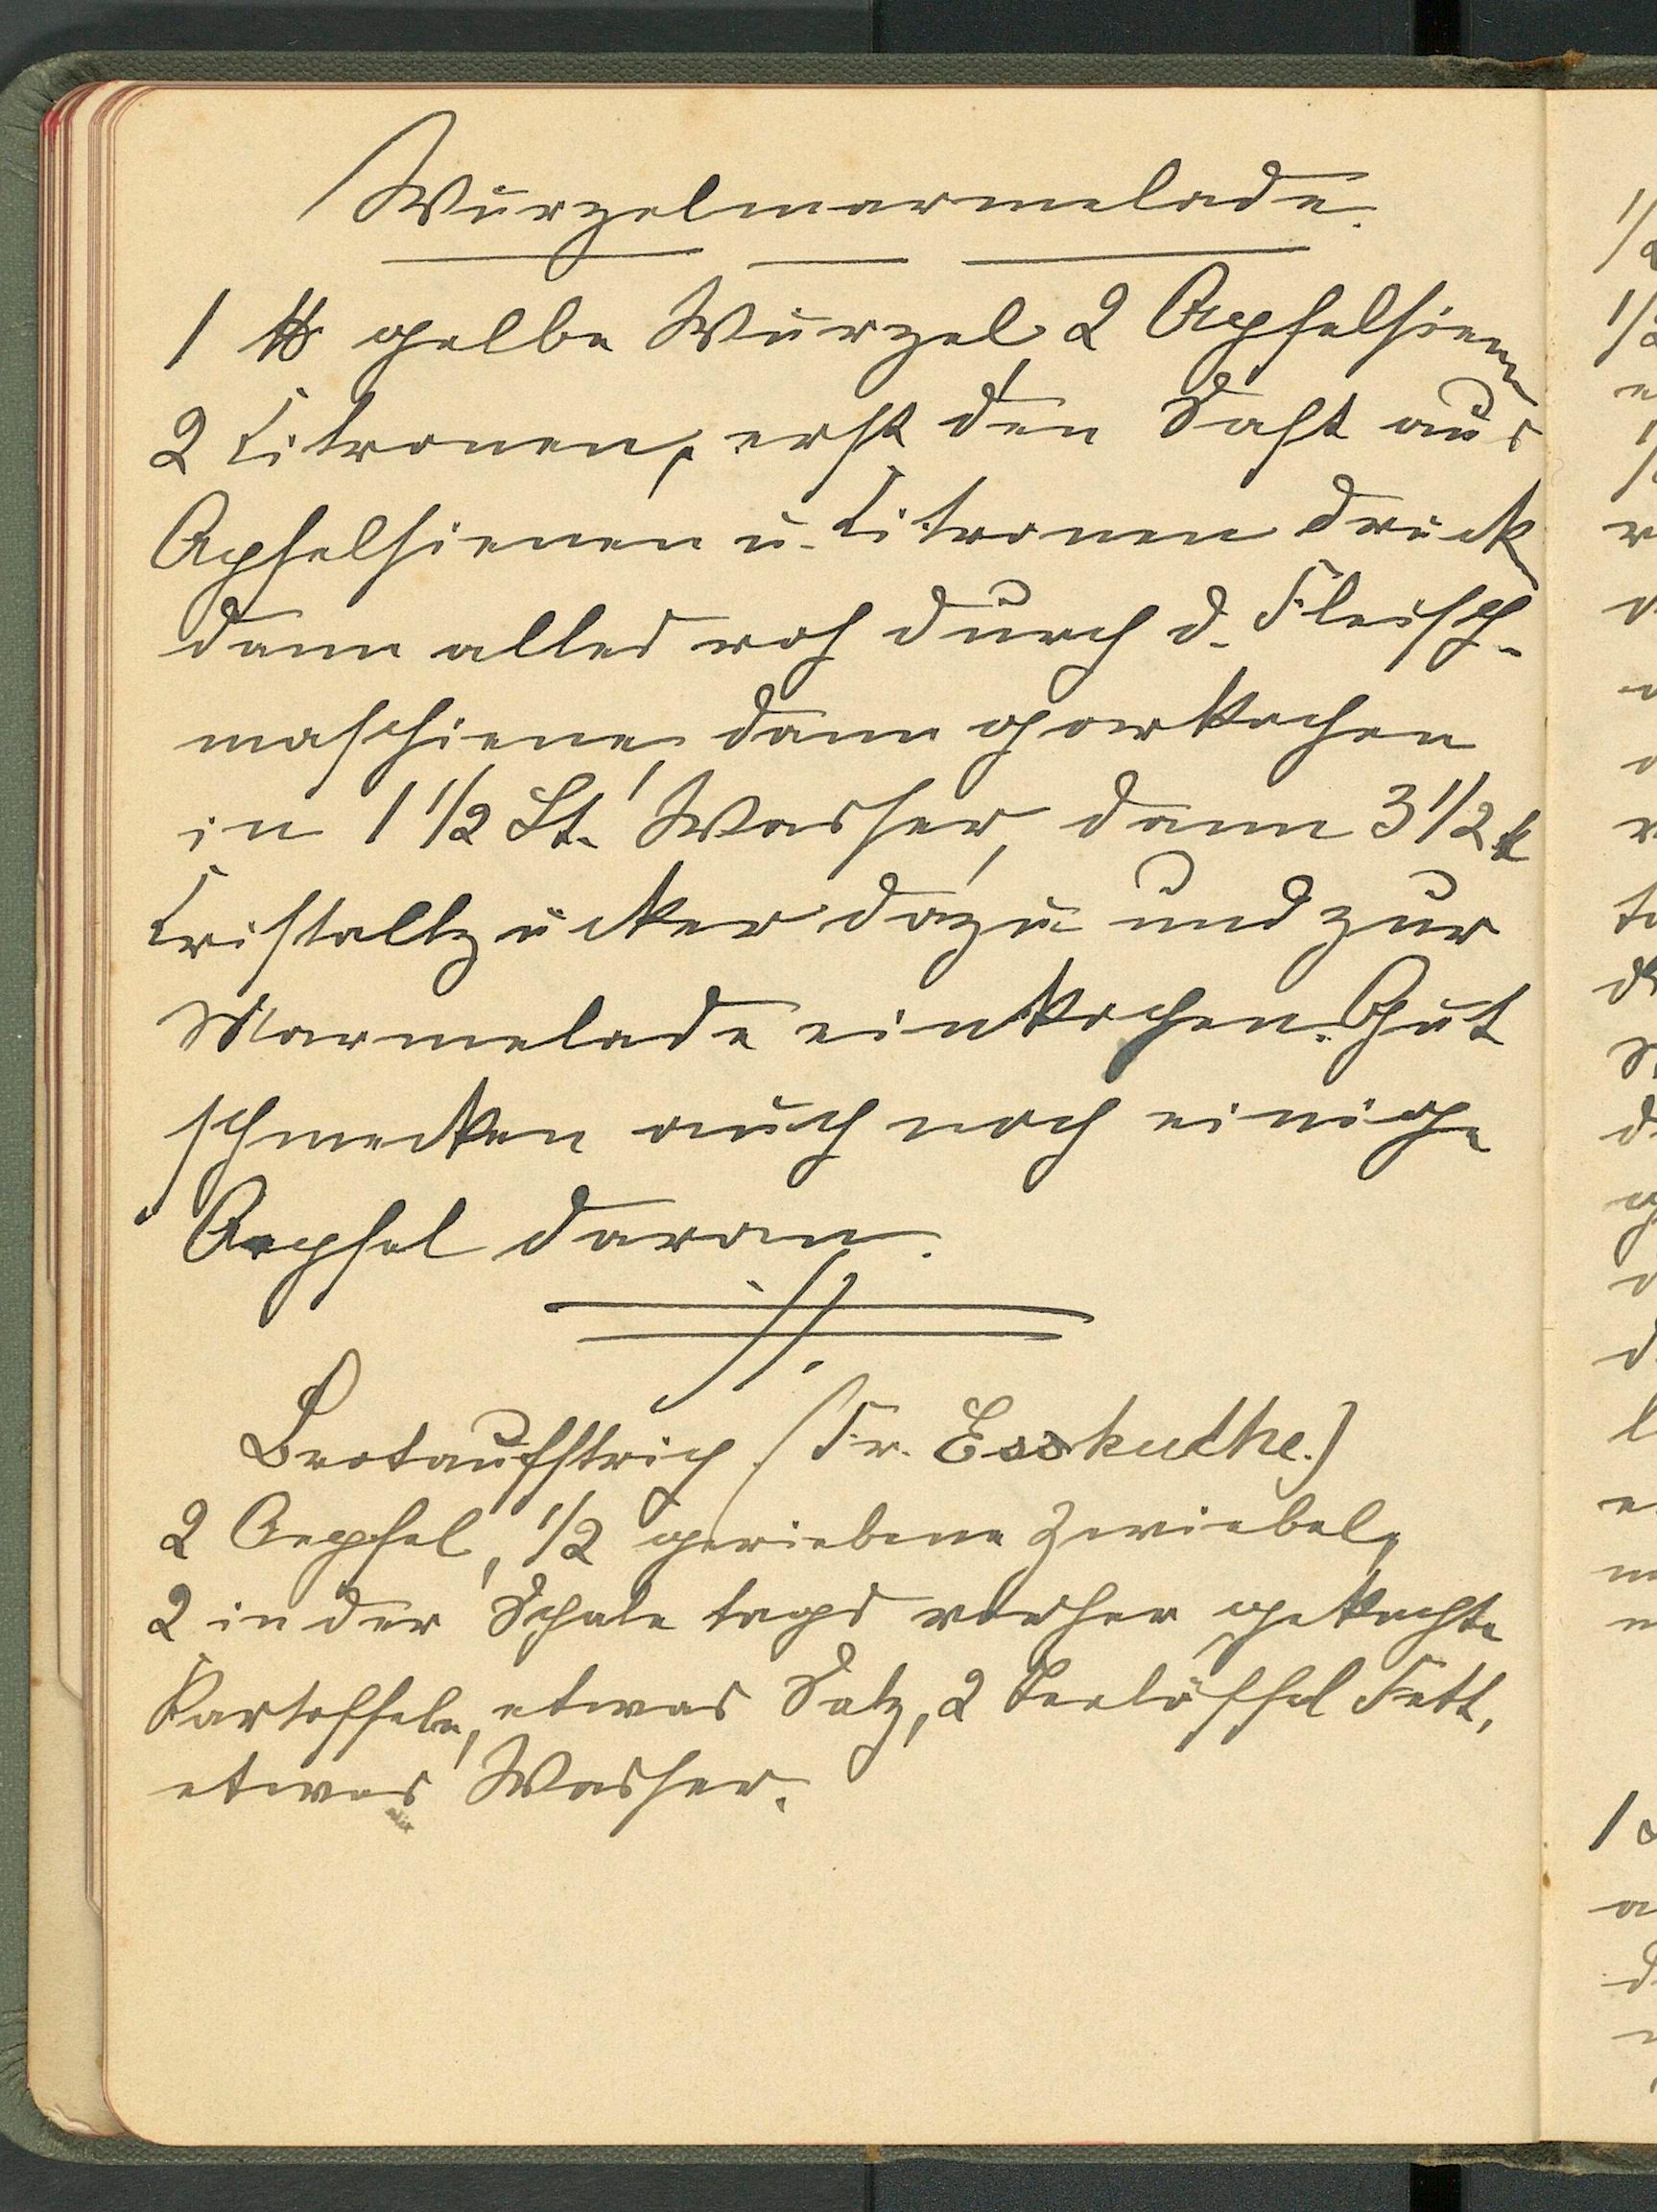 Wurzelmarmelade.
1 ℔ gelbe Wurzel, 2 Apfelsienen
2 Citronen, erst den Saft aus
Apfelsienen u. Citronen drück
dann alles roh durch d. Fleisch-
maschiene, dann garkochen
in 1 1/2 Lt. Wasser, dann 3 1/2 ℔
Cristallzucker dazu und zur
Marmelade einkochen. Gut
schmecken auch noch einige
Aepfel daran.
Brotaufstrich (Fr. Esskuthe.)
2 Aepfel, 1/2 geriebene Zwiebel,
2 in der Schale tags vorher gekochte
Kartoffeln, etwas Salz, 2 Teelöffel Fett,
etwas Wasser.